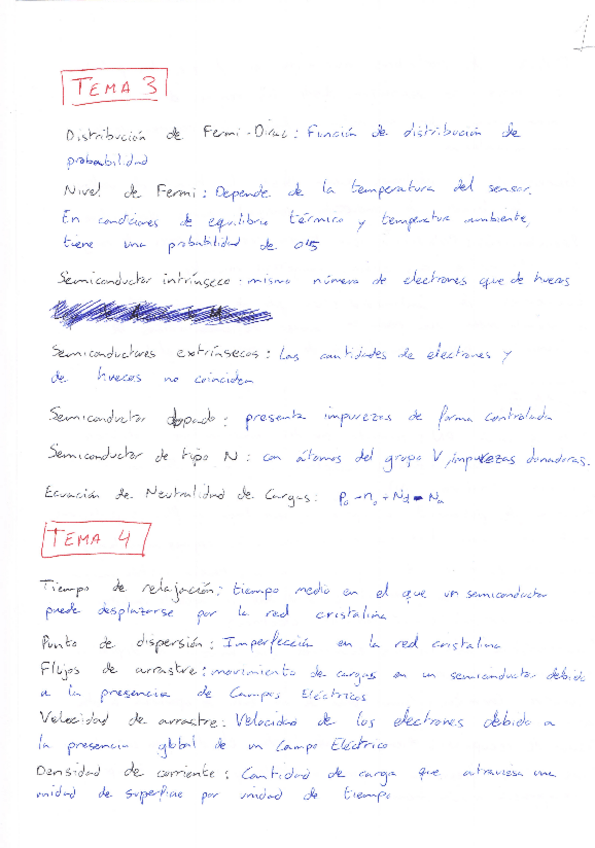 1
TEMA 3
Distribución de Fermi-Dirac: Función de distribución de
probabilidad
Nivel de Fermi: Depende de la temperatura del sensor.
En condiciones de equilibrio térmico y temperatura ambiente,
tiene una probabilidad de 0'5
Semiconductor intrínseco: mismo número de electrones que de huecos
Semiconductores extrínsecos: Las cantidades de electrones y
de huecos no coinciden
Semiconductor dopado: presenta impurezas de forma controlada
Semiconductor de tipo N: con átomos del grupo V, impurezas donadoras.
Ecuación de Neutralidad de Cargas: Po - no + Nd - Na
TEMA 4
Tiempo de relajación: tiempo medio en el que un semiconductor
puede desplazarse por la red cristalina
Punto de dispersión: Imperfección en la red cristalina
Flujos de arrastre: movimiento de cargas en un semiconductor debido
a la presencia de Campos Eléctricos
Velocidad de arrastre: Velocidad de los electrones debido a
la presencia global de un Campo Eléctrico
Densidad de corriente: Cantidad de carga que atraviesa una
unidad de superficie por unidad de tiempo